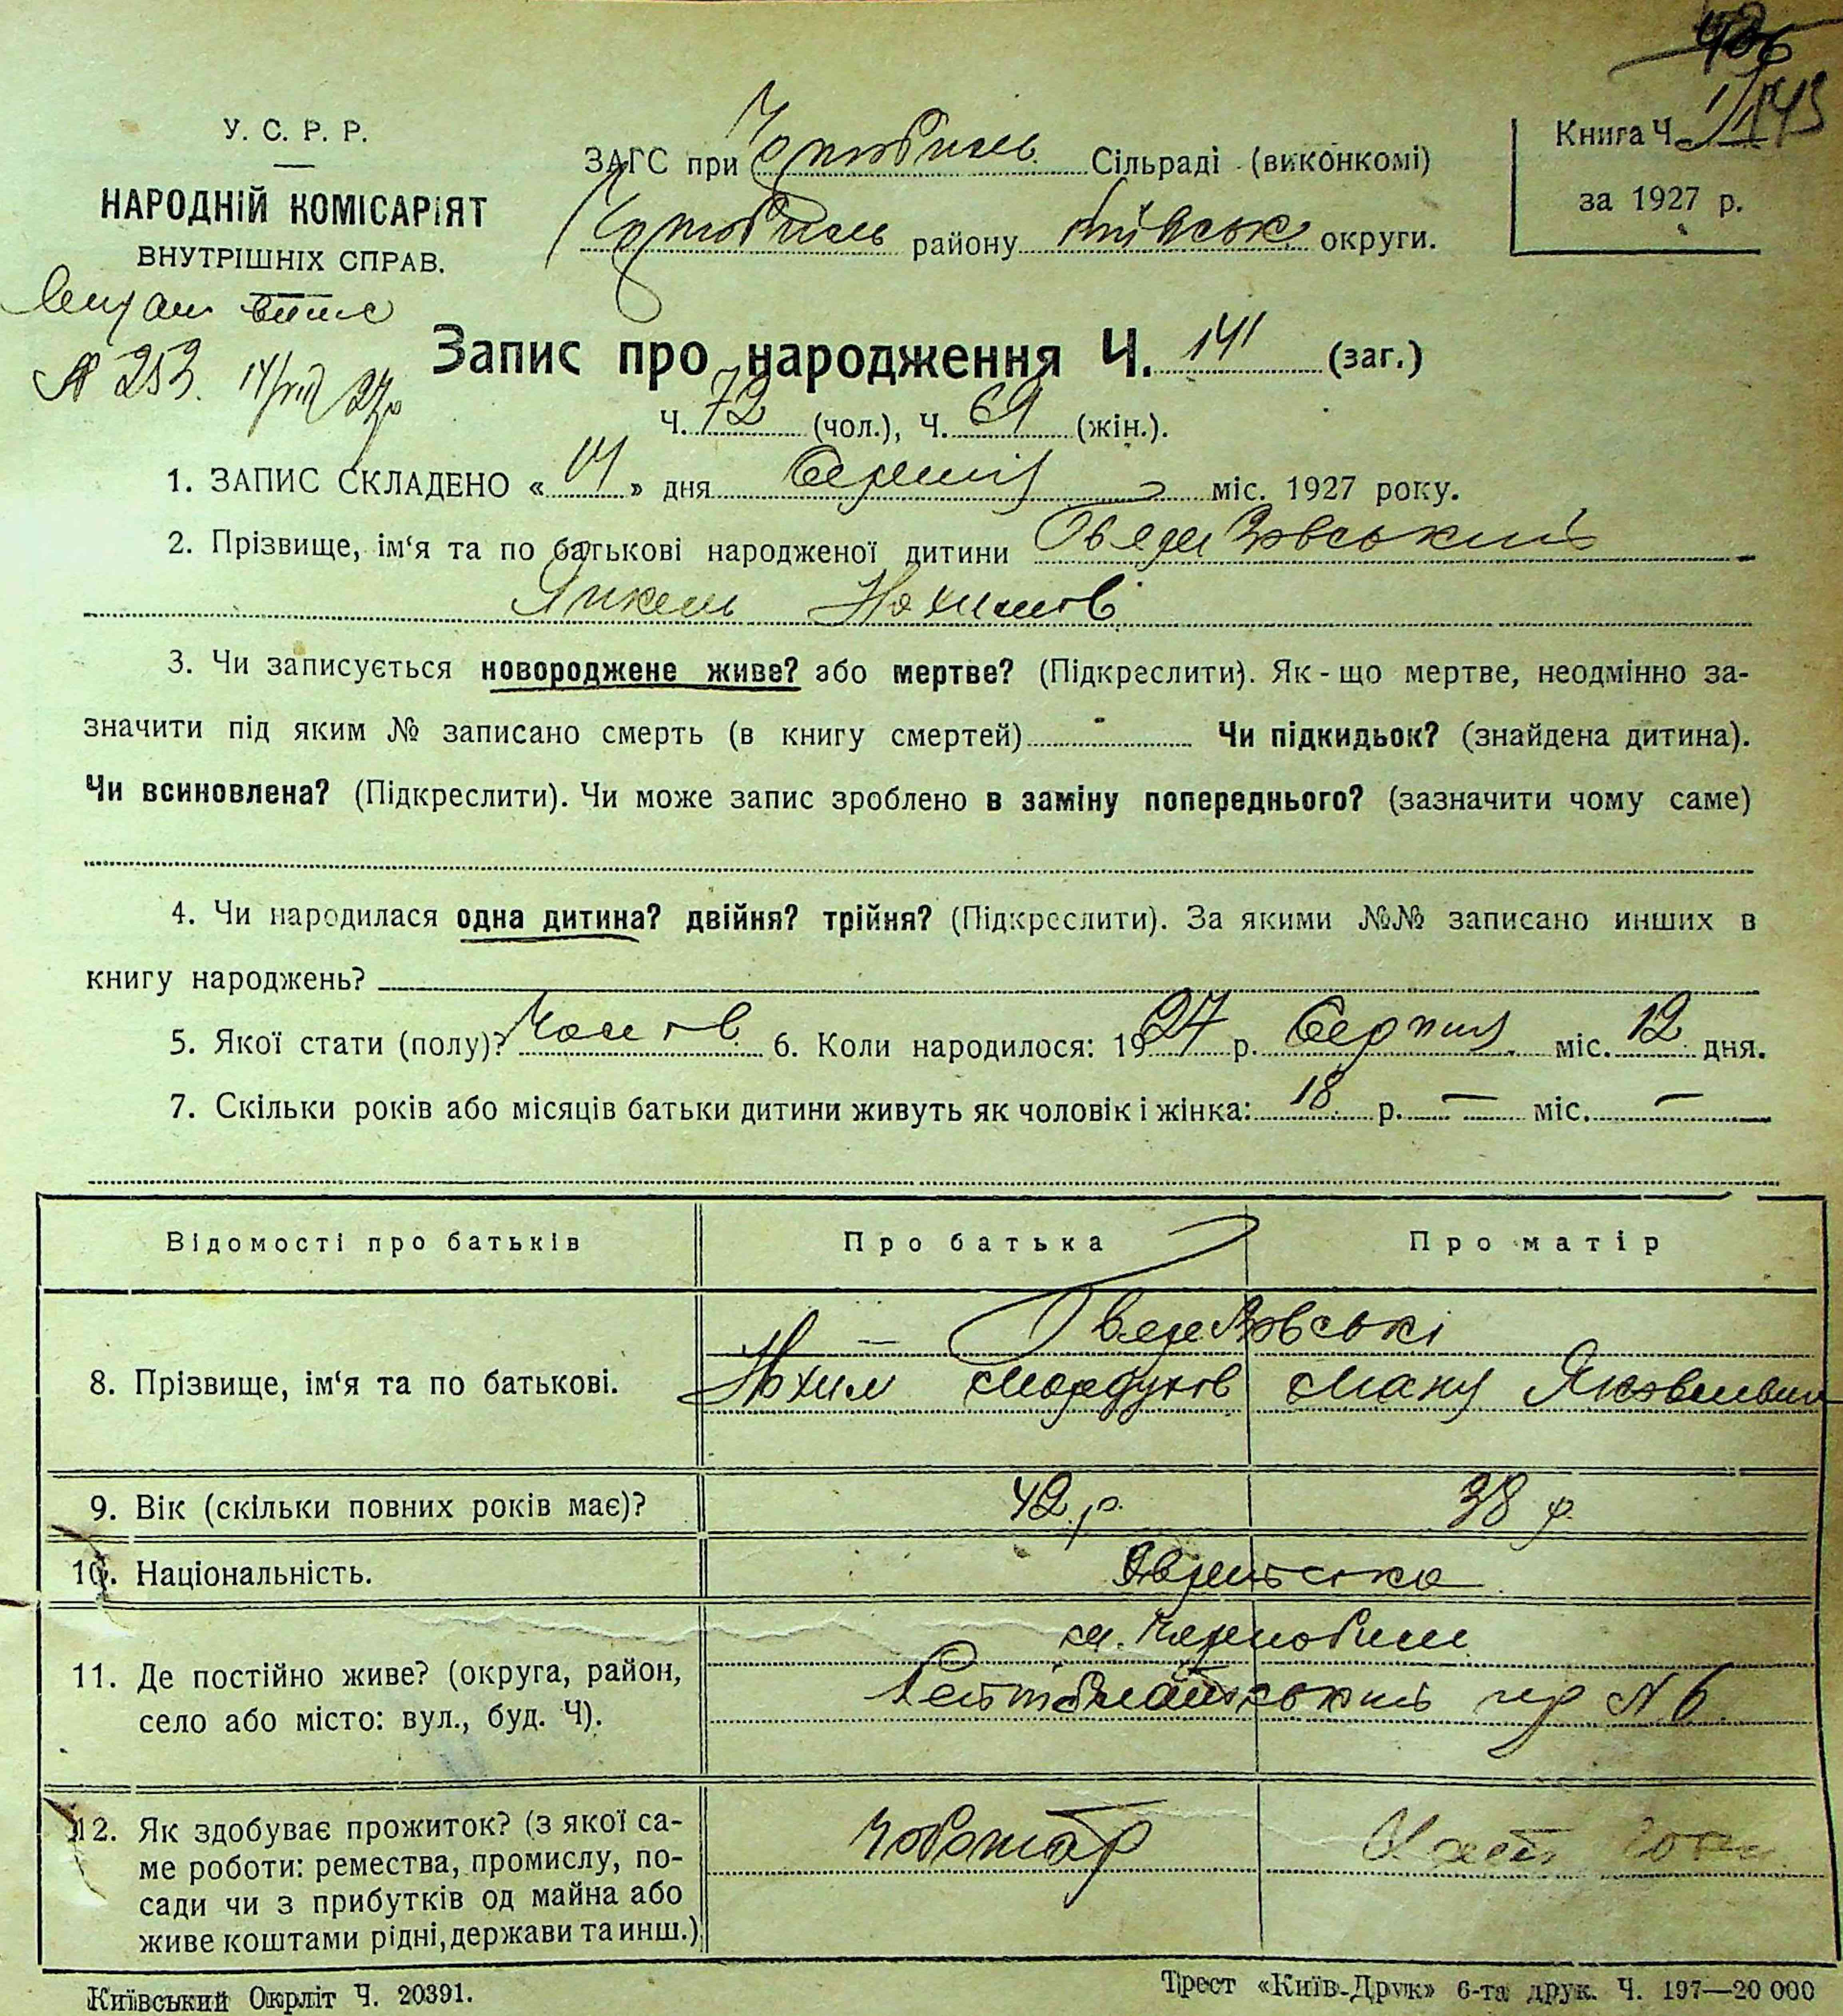 У. С. Р. Р.
НАРОДНІЙ КОМІСАРІЯТ
ВНУТРІШНІХ СПРАВ.
ЗАГС при Чорнобиль Сільраді (виконкомі)
Чорнобиль району Київськ округи.
Книга Ч.
за 1927 р.
№ 253. 14/VIII 27р
Запис про народження Ч. 141 (заг.)
Ч. 72 (чол.), Ч. 69 (жін.).
1. ЗАПИС СКЛАДЕНО «14» дня Серпня міс. 1927 року.
2. Прізвище, ім'я та по батькові народженої дитини
Янкель Нохимов
3. Чи записується новороджене живе? або мертве? (Підкреслити). Як-що мертве, неодмінно за-
значити під яким № записано смерть (в книгу смертей) - Чи підкидьок? (знайдена дитина).
Чи всиновлена? (Підкреслити). Чи може запис зроблено в заміну попереднього? (зазначити чому саме)
4. Чи народилася одна дитина? двійня? трійня? (Підкреслити). За якими №№ записано инших в
книгу народжень?
5. Якої стати (полу)? Чолов 6. Коли народилося: 1927 р. Серпня міс. 12 дня.
7. Скільки років або місяців батьки дитини живуть як чоловік і жінка: 18 р. — міс. —
Відомості про батьків Про батька Про матір
8. Прізвище, ім'я та по батькові.
Нохим Мордухов Маня Яковлевна
9. Вік (скільки повних років має)? 42 р. 38 р.
10. Національність. Яврейська
м. Чорнобиль
11. Де постійно живе? (округа, район,
село або місто: вул., буд. Ч). № 6
12. Як здобуває прожиток? (з якої са-
ме роботи: ремества, промислу, по-
сади чи з прибутків од майна або
живе коштами рідні, держави та инш.)
Чоботар
Київський Окрліт Ч. 20391.
Трест «Київ-Друк» 6-та друк. Ч. 197—20 000